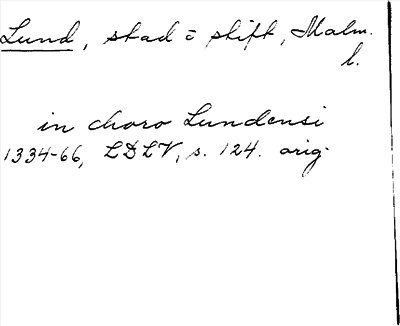 Lund, stad o stift, Malm.
l.
in choro Lundensi
1334-66, LDLV, s. 124. orig.